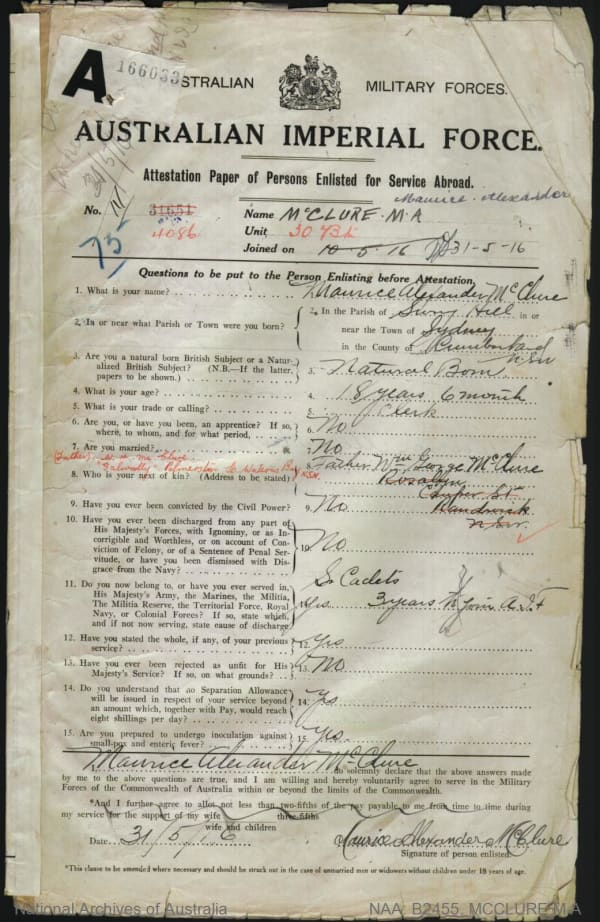 A
166033
AUSTRALIAN MILITARY FORCES.
AUSTRALIAN IMPERIAL FORCE.
Attestation Paper of Persons Enlisted for Service Abroad.
Maurice Alexander
No. 31651 Name McCLURE. M. A
75 4086 Unit
Joined on 10-5-16 31-5-16
Questions to be put to the Person Enlisting before Attestation.
1. What is your name? Maurice Alexander McClure
2. In or near what Parish or Town were you born? 2. In the Parish of Surry Hill in or
near the Town of Sydney
in the County of Cumberland
NSW
3. Are you a natural born British Subject or a Natu-
ralized British Subject? (N.B.—If the latter,
papers to be shown.) 3. Natural Born
4. What is your age? 4. 18 years 6 month
5. What is your trade or calling? 5. Clerk
6. Are you, or have you been, an apprentice? If so,
where, to whom, and for what period, 6. No
7. Are you married? 7. No
(Father)
8. Who is your next of kin? (Address to be stated) Father Wm George McClure
N.S.W.
Cowper St
Randwick
NSW
9. Have you ever been convicted by the Civil Power? 9. No
10. Have you ever been discharged from any part of
His Majesty's Forces, with Ignominy, or as In-
corrigible and Worthless, or on account of Con-
viction of Felony, or of a Sentence of Penal Ser-
vitude, or have you been dismissed with Dis-
grace from the Navy? 10. No
11. Do you now belong to, or have you ever served in,
His Majesty's Army, the Marines, the Militia,
The Militia Reserve, the Territorial Force, Royal
Navy, or Colonial Forces? If so, state which,
and if not now serving, state cause of discharge
Sn Cadets
3 years To join A.I.F
12. Have you stated the whole, if any, of your previous
service? 12. Yes
13. Have you ever been rejected as unfit for His
Majesty's Service? If so, on what grounds? 13. No
14. Do you understand that no Separation Allowance
will be issued in respect of your service beyond
an amount which, together with Pay, would reach
eight shillings per day? 14. Yes
15. Are you prepared to undergo inoculation against
small-pox and enteric fever? 15. Yes
I, Maurice Alexander McClure do solemnly declare that the above answers made
by me to the above questions are true, and I am willing and hereby voluntarily agree to serve in the Military
Forces of the Commonwealth of Australia within or beyond the limits of the Commonwealth.
*And I further agree to allot not less than two-fifths of the pay payable to me from time to time during
three-fifths
my service for the support of my wife
wife and children
Date 31/5/16 Maurice Alexander McClure
Signature of person enlisted.
*This clause to be amended where necessary and should be struck out in the case of unmarried men or widowers without children under 18 years of age.
National Archives of Australia NAA: B2455, MCCLURE M A